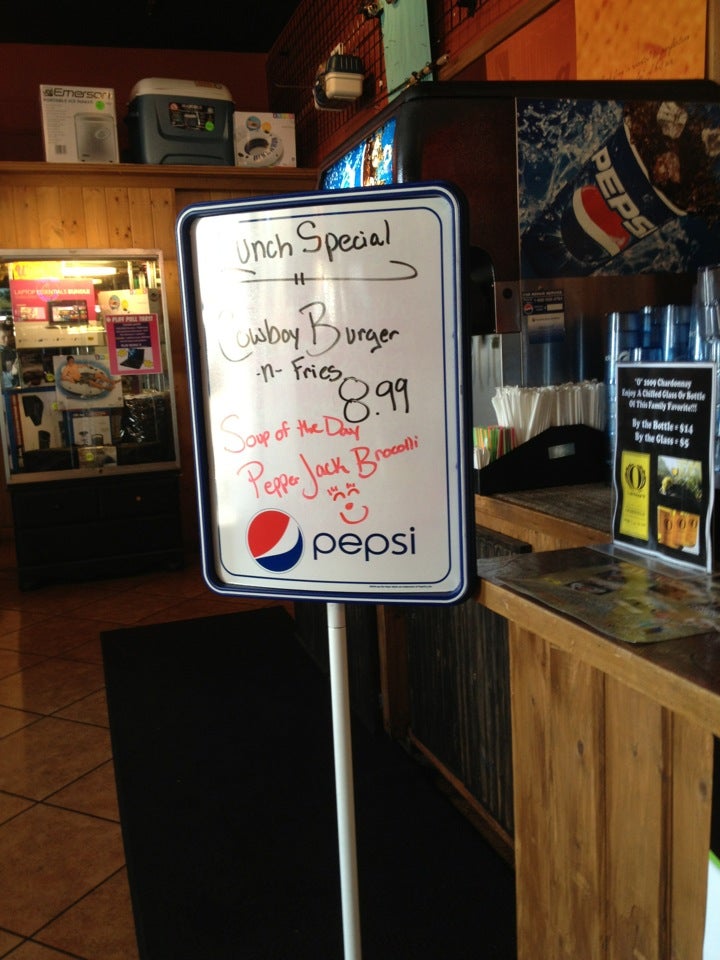 Lunch Special
Cowboy Burger
-n- Fries
8.99
Soup of the Day
Pepper Jack Brocolli
pepsi
Emerson
PORTABLE ICE MAKER
PEPSI
LAPTOP ESSENTIALS BUNDLE
"O" 2009 Chardonnay
Enjoy A Chilled Glass Or Bottle
Of This Family Favorite!!!
By the Bottle = $14
By the Glass = $5